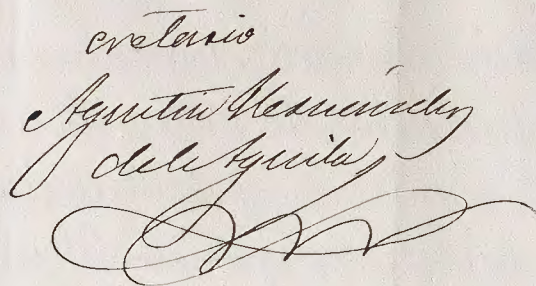 cretario
Agustin Hernández
del Aguila